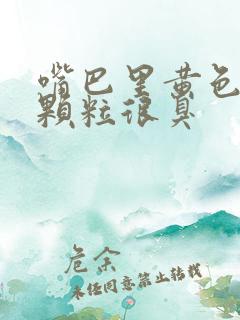 嘴巴里黄色
颗粒很臭
危余
未经同意禁止转载